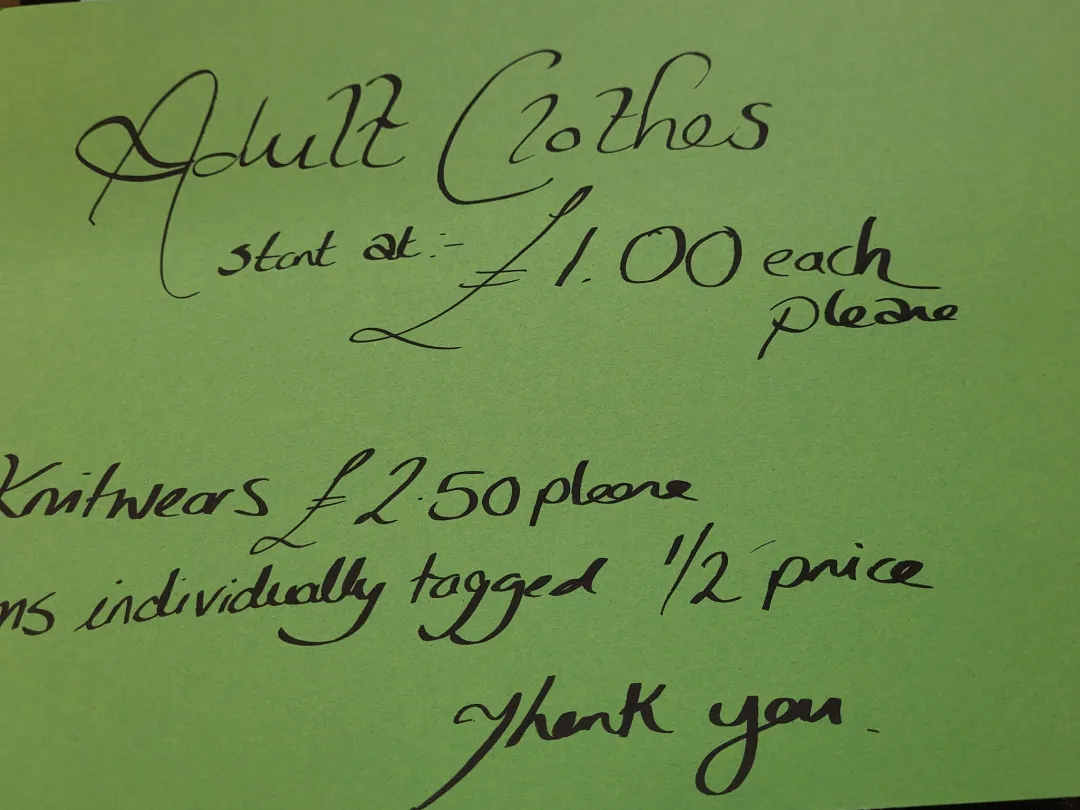 Adult Clothes
start at:- £1.00 each
please
Knitwears £2.50 please
ms individually tagged 1/2 price
Thank you.